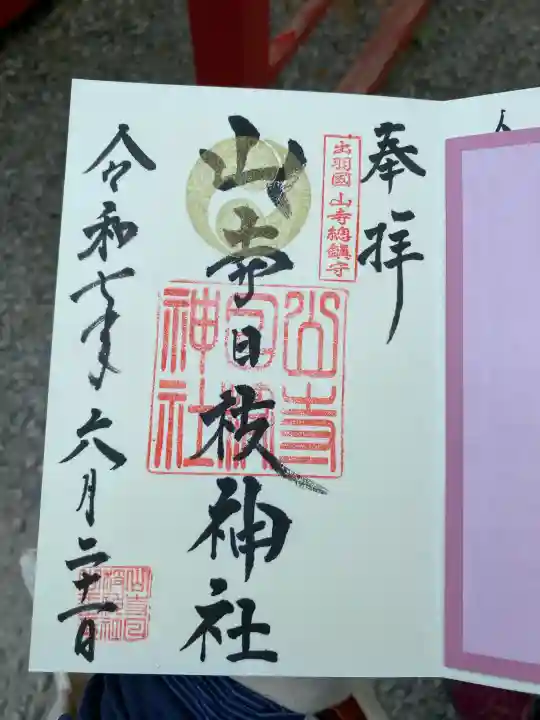 奉拝
出羽國 山寺總鎮守
山寺日枝神社
山寺日枝神社
令和七年六月二十一日